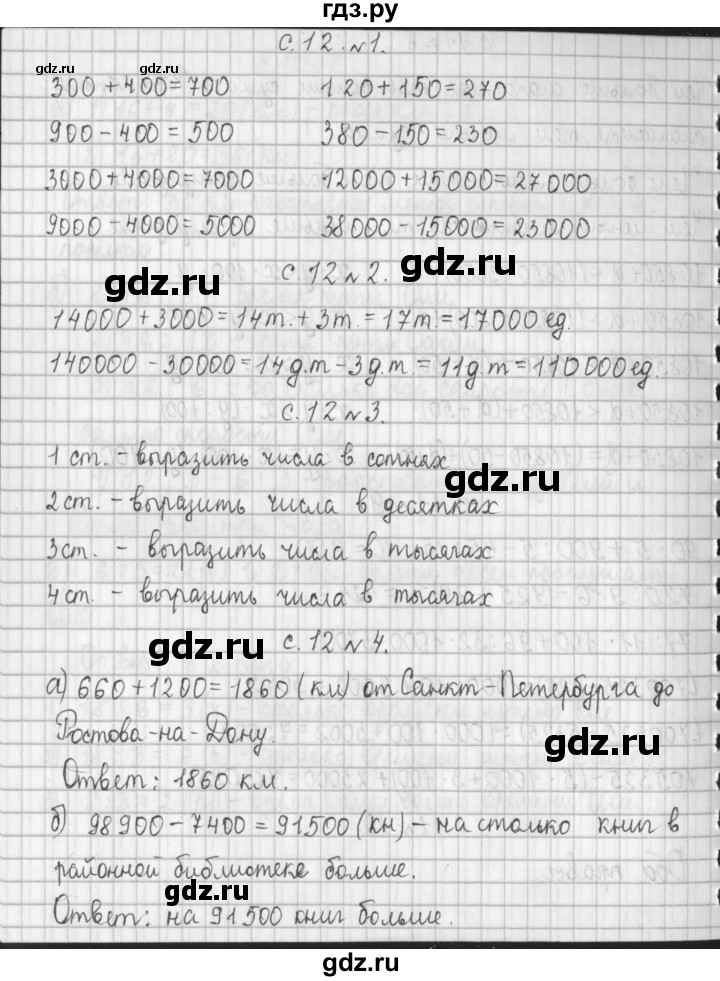 гдз.ру
С.12 №1.
gdz.ru
gdz.ru
300+400=700 120+150=270
900-400=500 380-150=230
3000+4000=7000 12000+15000=27000
9000-4000=5000 38000-15000=23000
gdz.ru
gdz.ru
с.12 №2.
14000+3000=14т.+3т.=17т.=17000 ед.
140000-30000=14д.т-3д.т.=11д.т=110000 ед.
с.12 №3.
1 ст. - выразить числа в сотнях
gdz.ru
2 ст. - выразить числа в десятках
3 ст. - выразить числа в тысячах
4 ст. - выразить числа в тысячах
gdz.ru
с.12 №4.
а) 660+1200=1860 (км) от Санкт-Петербурга до
Ростова-на-Дону.
gdz.ru
Ответ: 1860 км.
б) 98900-7400=91500 (кн) - на столько книг в
районной библиотеке больше.
gdz.ru
Ответ: на 91500 книг больше.
gdz.ru